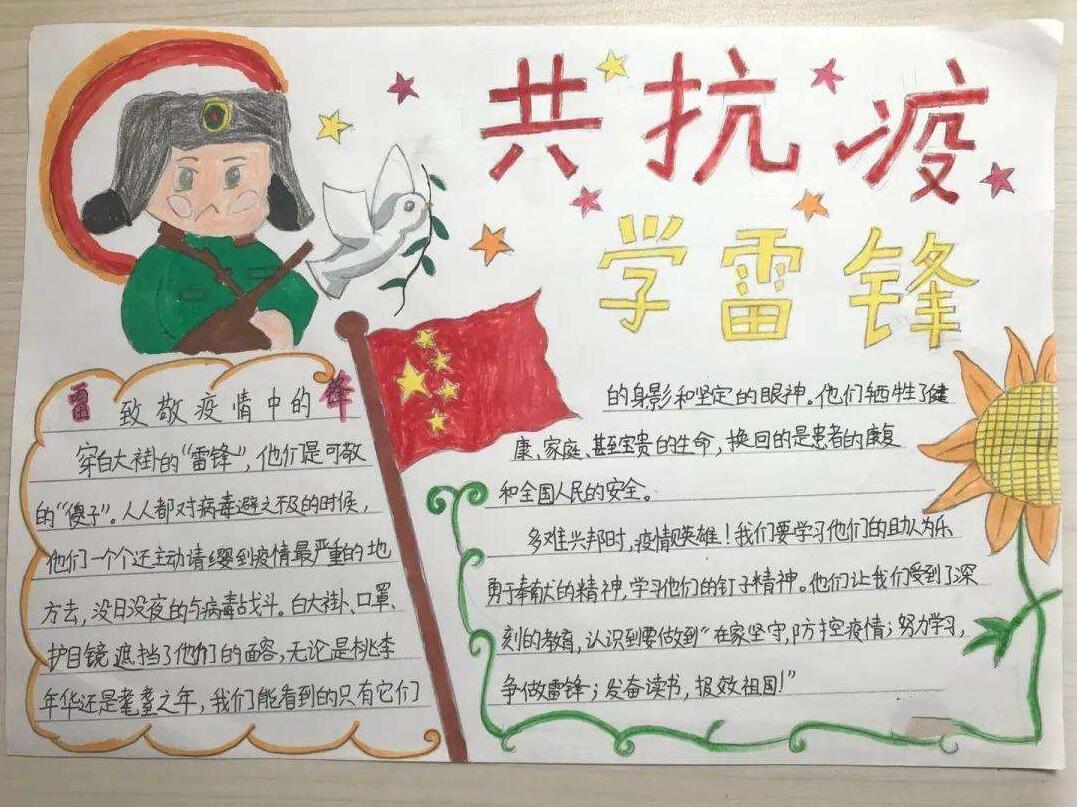 共抗疫
学雷锋
致敬疫情中的雷锋
穿白大褂的“雷锋”，他们是可敬
的“傻子”。人人都对病毒避之不及的时候，
他们一个个还主动请缨到疫情最严重的地
方去，没日没夜的与病毒战斗。白大褂、口罩、
护目镜遮挡了他们的面容，无论是桃李
年华还是耄耋之年，我们能看到的只有它们
的身影和坚定的眼神。他们牺牲了健
康、家庭、甚至宝贵的生命，换回的是患者的康复
和全国人民的安全。
多难兴邦时，疫情现英雄！我们要学习他们的助人为乐
勇于奉献的精神，学习他们的钉子精神。他们让我们受到了深
刻的教育，认识到要做到“在家坚守，防控疫情；努力学习，
争做雷锋；发奋读书，报效祖国！”